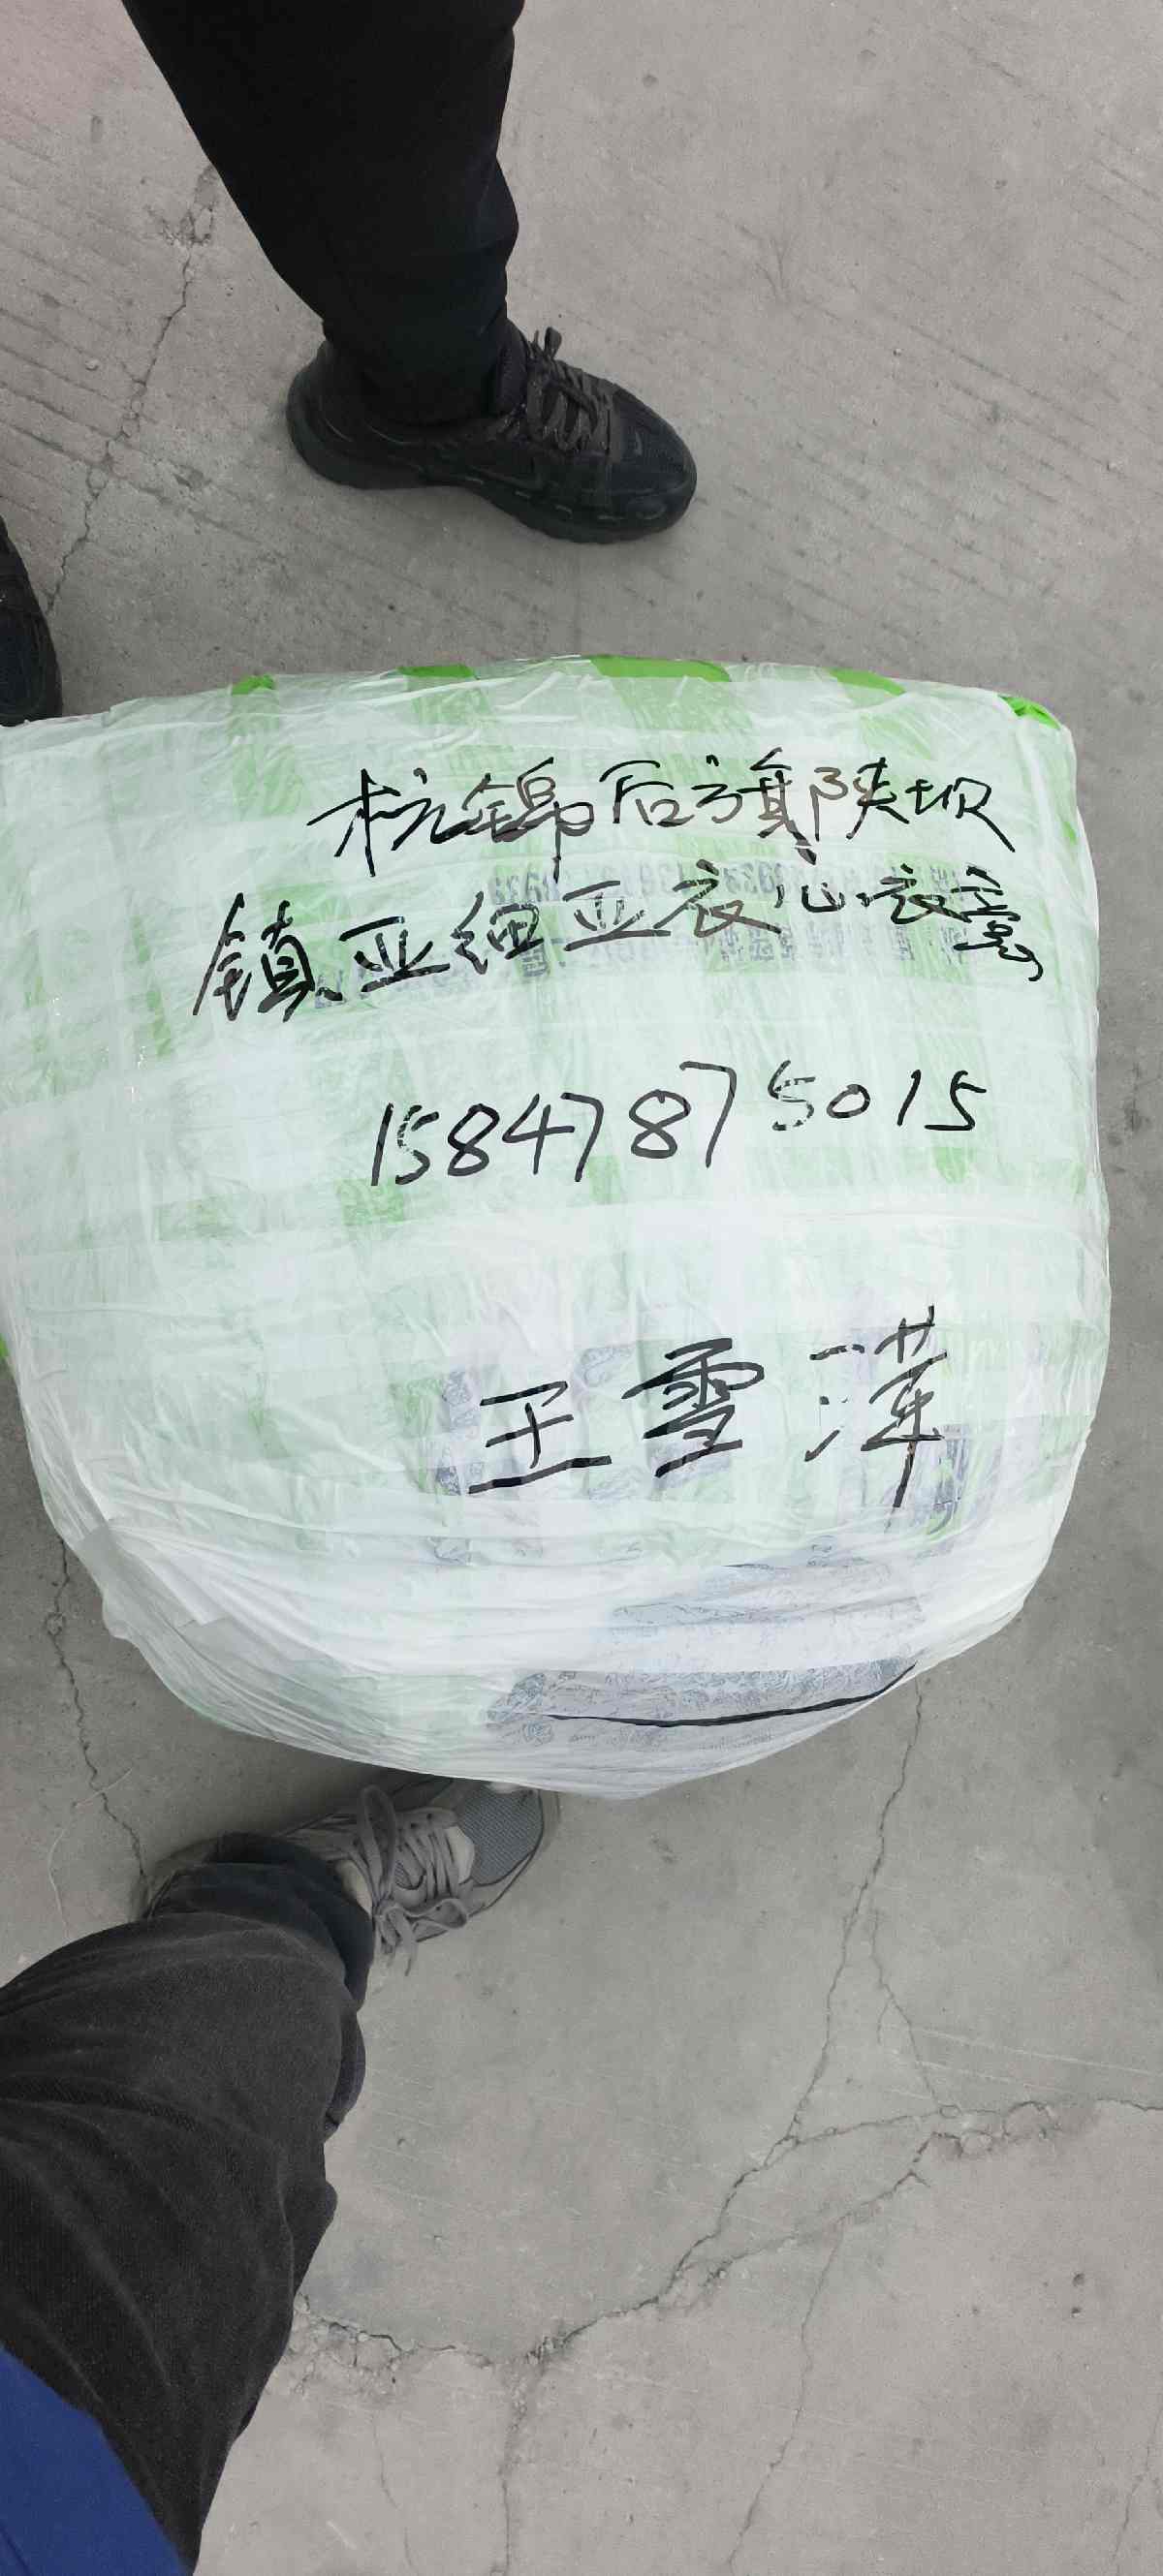 杭锦后旗陕坝
镇亚细亚衣心衣意
15847875015
王雪莲